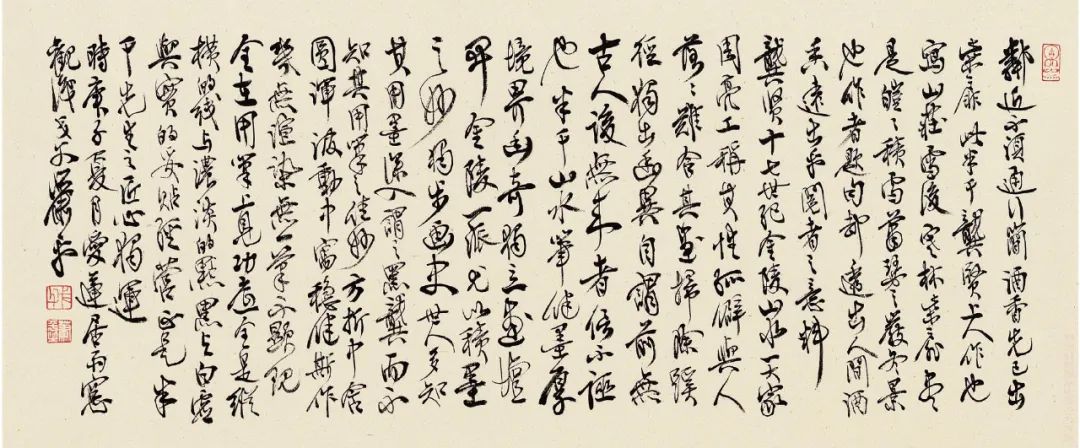 鄰近不須通行簡酒香先已出
柴扉此半千龔賢上人作也
寫山莊雪後寒林
是皚皚積雪蕭瑟之嚴冬景
也作者題句却透出人間酒
香遠出乎閱者之意料
龔賢十七世紀金陵山水大家
周亮工稱其性孤僻與人
落落難合其畫掃除蹊
徑獨出幽異自謂前無
古人後無來者信不誣
也半千山水筆健墨厚
境界幽奇獨立畫壇
金陵一派尤以積墨
之妙獨步畫史世人多知
其用墨深人謂之黑龔而不
知其用筆之佳妙方折中含
圓渾波動中富穩健斯作
無渲染無一筆不顯現
全在用筆上見功底全是縱
橫的綫與濃淡的點黑與白虛
與實的妥貼經營正是半
千先生之匠心獨運
時庚子夏月愛蓮居雨窗
觀後蕭平